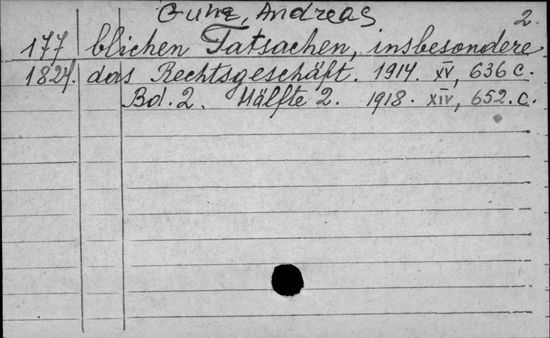 Guhr, Andreas
2.
177 blichen Tatsachen, insbesondere
1824. das Rechtsgeschäft. 1914. XV, 636 c.
Bd. 2. Hälfte 2. 1918. XIV, 652. c.